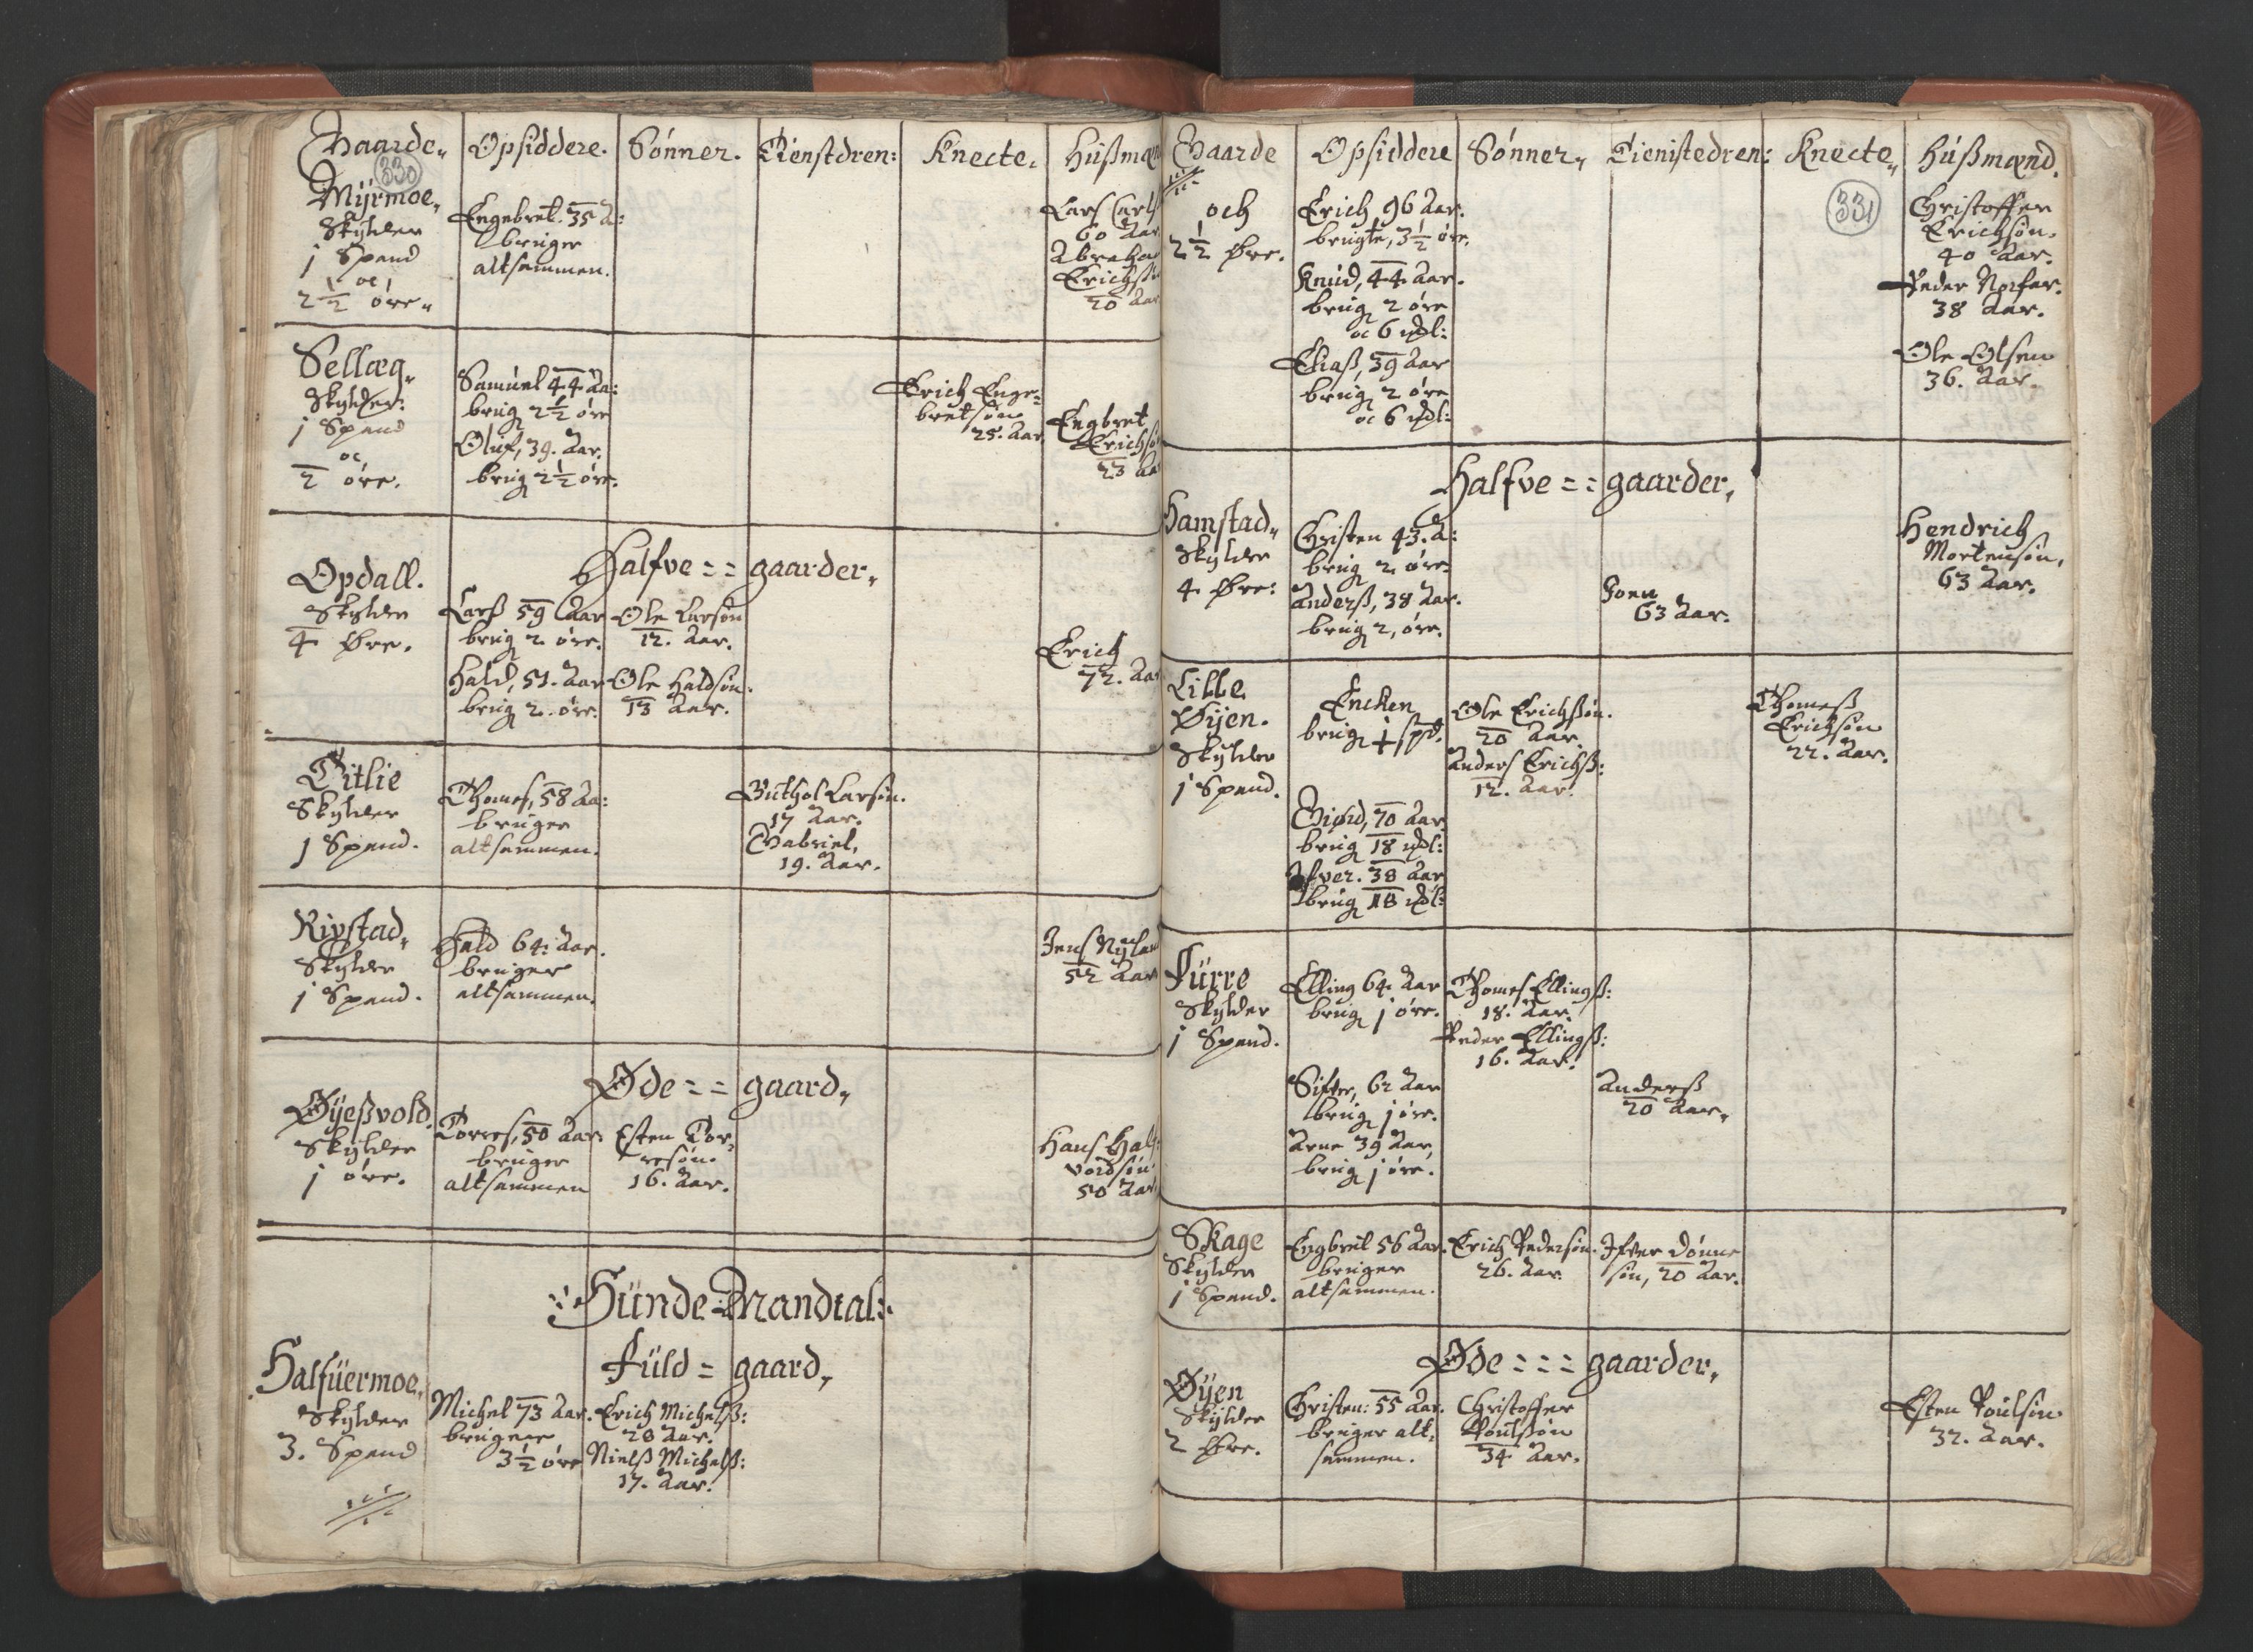 Gaarde„ Opsiddere. Sønner. Tienstdren: Knecte„ Hüßmæn
330
Mÿrmoe„
Skylder
j Spand
oc
2½ øre„
Engebret. 35 A:
bruger
altsammen.
Lars Carls
60 Aar
Abraha
Erichsø
20 Aar
Sellæg„
Skylder:
j Spand
oc
½ øre.
Samuel 44 Aa:
brug 2½ øre
Oluf, 39. Aar.
brug 2½ øre.
Erich Enge-
bretsøn
25. Aar
Engbret
Erichsø
23 Aa
Halfve == gaarder„
Opdall.
Skylder
4 Øre.
Larß 59 Aar
brug 2 øre.
Hald, 51. Aar
brug 2. øre.
Ole Larsøn
12. Aar.
Ole Haldsøn.
13 Aar.
Erich
72. Aar
Titlie
Skylder
j Spand.
Thomes, 58 Aa:
bruger
altsammen.
Guthol Larsøn.
17 Aar.
Gabriel,
19. Aar.
Rivstad„
Skylder
j Spand.
Hald 64: Aar.
bruger
altsammen.
Jens Nÿlan
52 Aar
Øde == gaard„
Øÿeßvold.
Skylder
j øre.
Torres, 50 Aar
bruger
altsammen
Esten Tor-
resøn.
16. Aar.
Hans Hal-
vordsøn
50 Aar
Hünde Mandtal:
Füld = gaard„
Halfüermoe„
Skylder
3. Spand
Michel 73 Aar.
brugeer
3½ øre
Erich Michelß:
28 Aar.
Nielß Michelß:
17. Aar.
Gaarde Opsiddere Sønner„ Tienistedren: Knecte„ Hüßmænd.
331
och
2½ Øre.
Erich 96 Aar.
brugte, 3½ øre.
Knud, 44 Aar.
brug 2 øre
oc 6 mdl:
Eliaß, 39 Aar
brug 2 øre
oc 6 mdl:
Christoffer
Erichsøn.
40 Aar.
Peder Norfar.
38 Aar.
Ole Olsen
36. Aar.
Halfve == gaarder„
Hamstad„
Skylder
4 Øre:
Christen 43. A:
brug 2 øre.
Anderß, 38 Aar.
brug 2, øre.
Joen
63 Aar.
Hendrich
Mortensøn,
63 Aar.
Lille
Øÿen.
Skylder
j Spand.
Encken
brug ½ spd.
Giord, 70 Aar
brug 18 mdl:
Ifver. 38 Aar
brug 18 mdl:
Ole Erichßøn.
20 Aar.
Anders Erichß:
12. Aar.
Thomeß
Erichsøn
22. Aar.
Fürre
Skylder
j Spand.
Elling 64 Aar
brug j øre.
Sifver, 62 Aar
brug j øre.
Arne 39 Aar,
brug j øre.
Thomes Ellingß:
18. Aar.
Peder Ellingß:
16. Aar.
Anderß
20 Aar„
Skage
Skylder
j Spand.
Engbret 56 Aar.
bruger
altsammen.
Erich Pedersøn.
26. Aar
Ifver Dønne
søn, 20 Aar.
Øde === gaarder„
Øÿen
Skylder
2 Øre.
Christen: 55 Aar.
bruger alt-
sammen.
Christoffer
Poulsøn
34 Aar.
Esten Poulsøn
32. Aar.